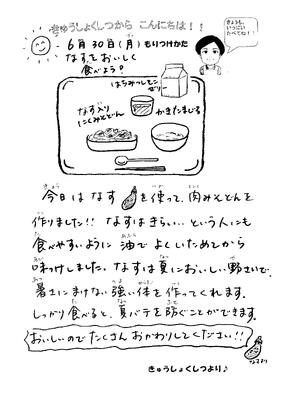 きゅうしょくしつから こんにちは！！
きょうも、
いっぱい
たべてね！！
6月30日(月)もりつけかた
なすをおいしく
食べよう？
はちみつレモン
ゼリー
なす入り
にくみそどん
かきたまじる
今日はなすを使って、肉みそどんを
作りました!! なすはきらい…という人にも
食べやすいように油でよくいためてから
味つけしました。なすは夏においしい野さいで、
暑さにまけない強い体を作ってくれます。
しっかり食べると、夏バテを防ぐことができます。
おいしいのでたくさんおかわりしてください!!
きゅうしょくしつより♪